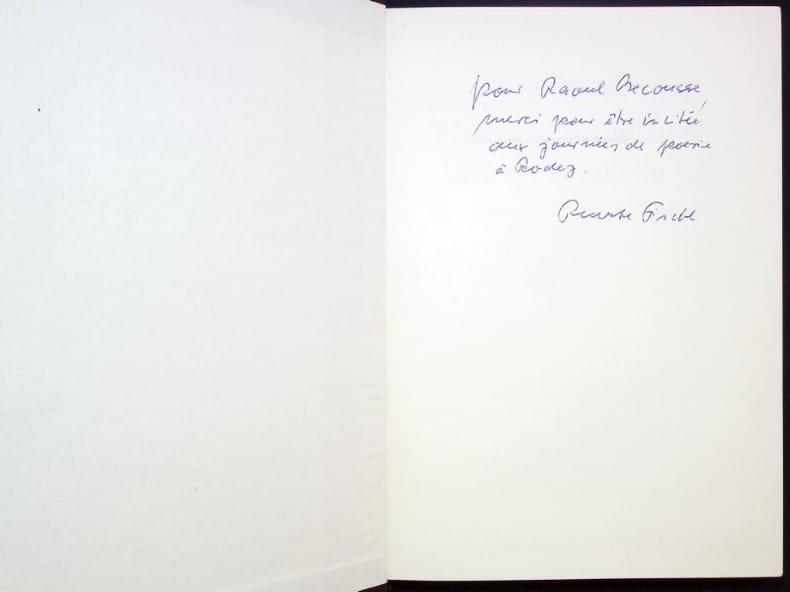 pour Raoul Becousse,
merci pour être invitée
aux journées de poésie
à Rodez.